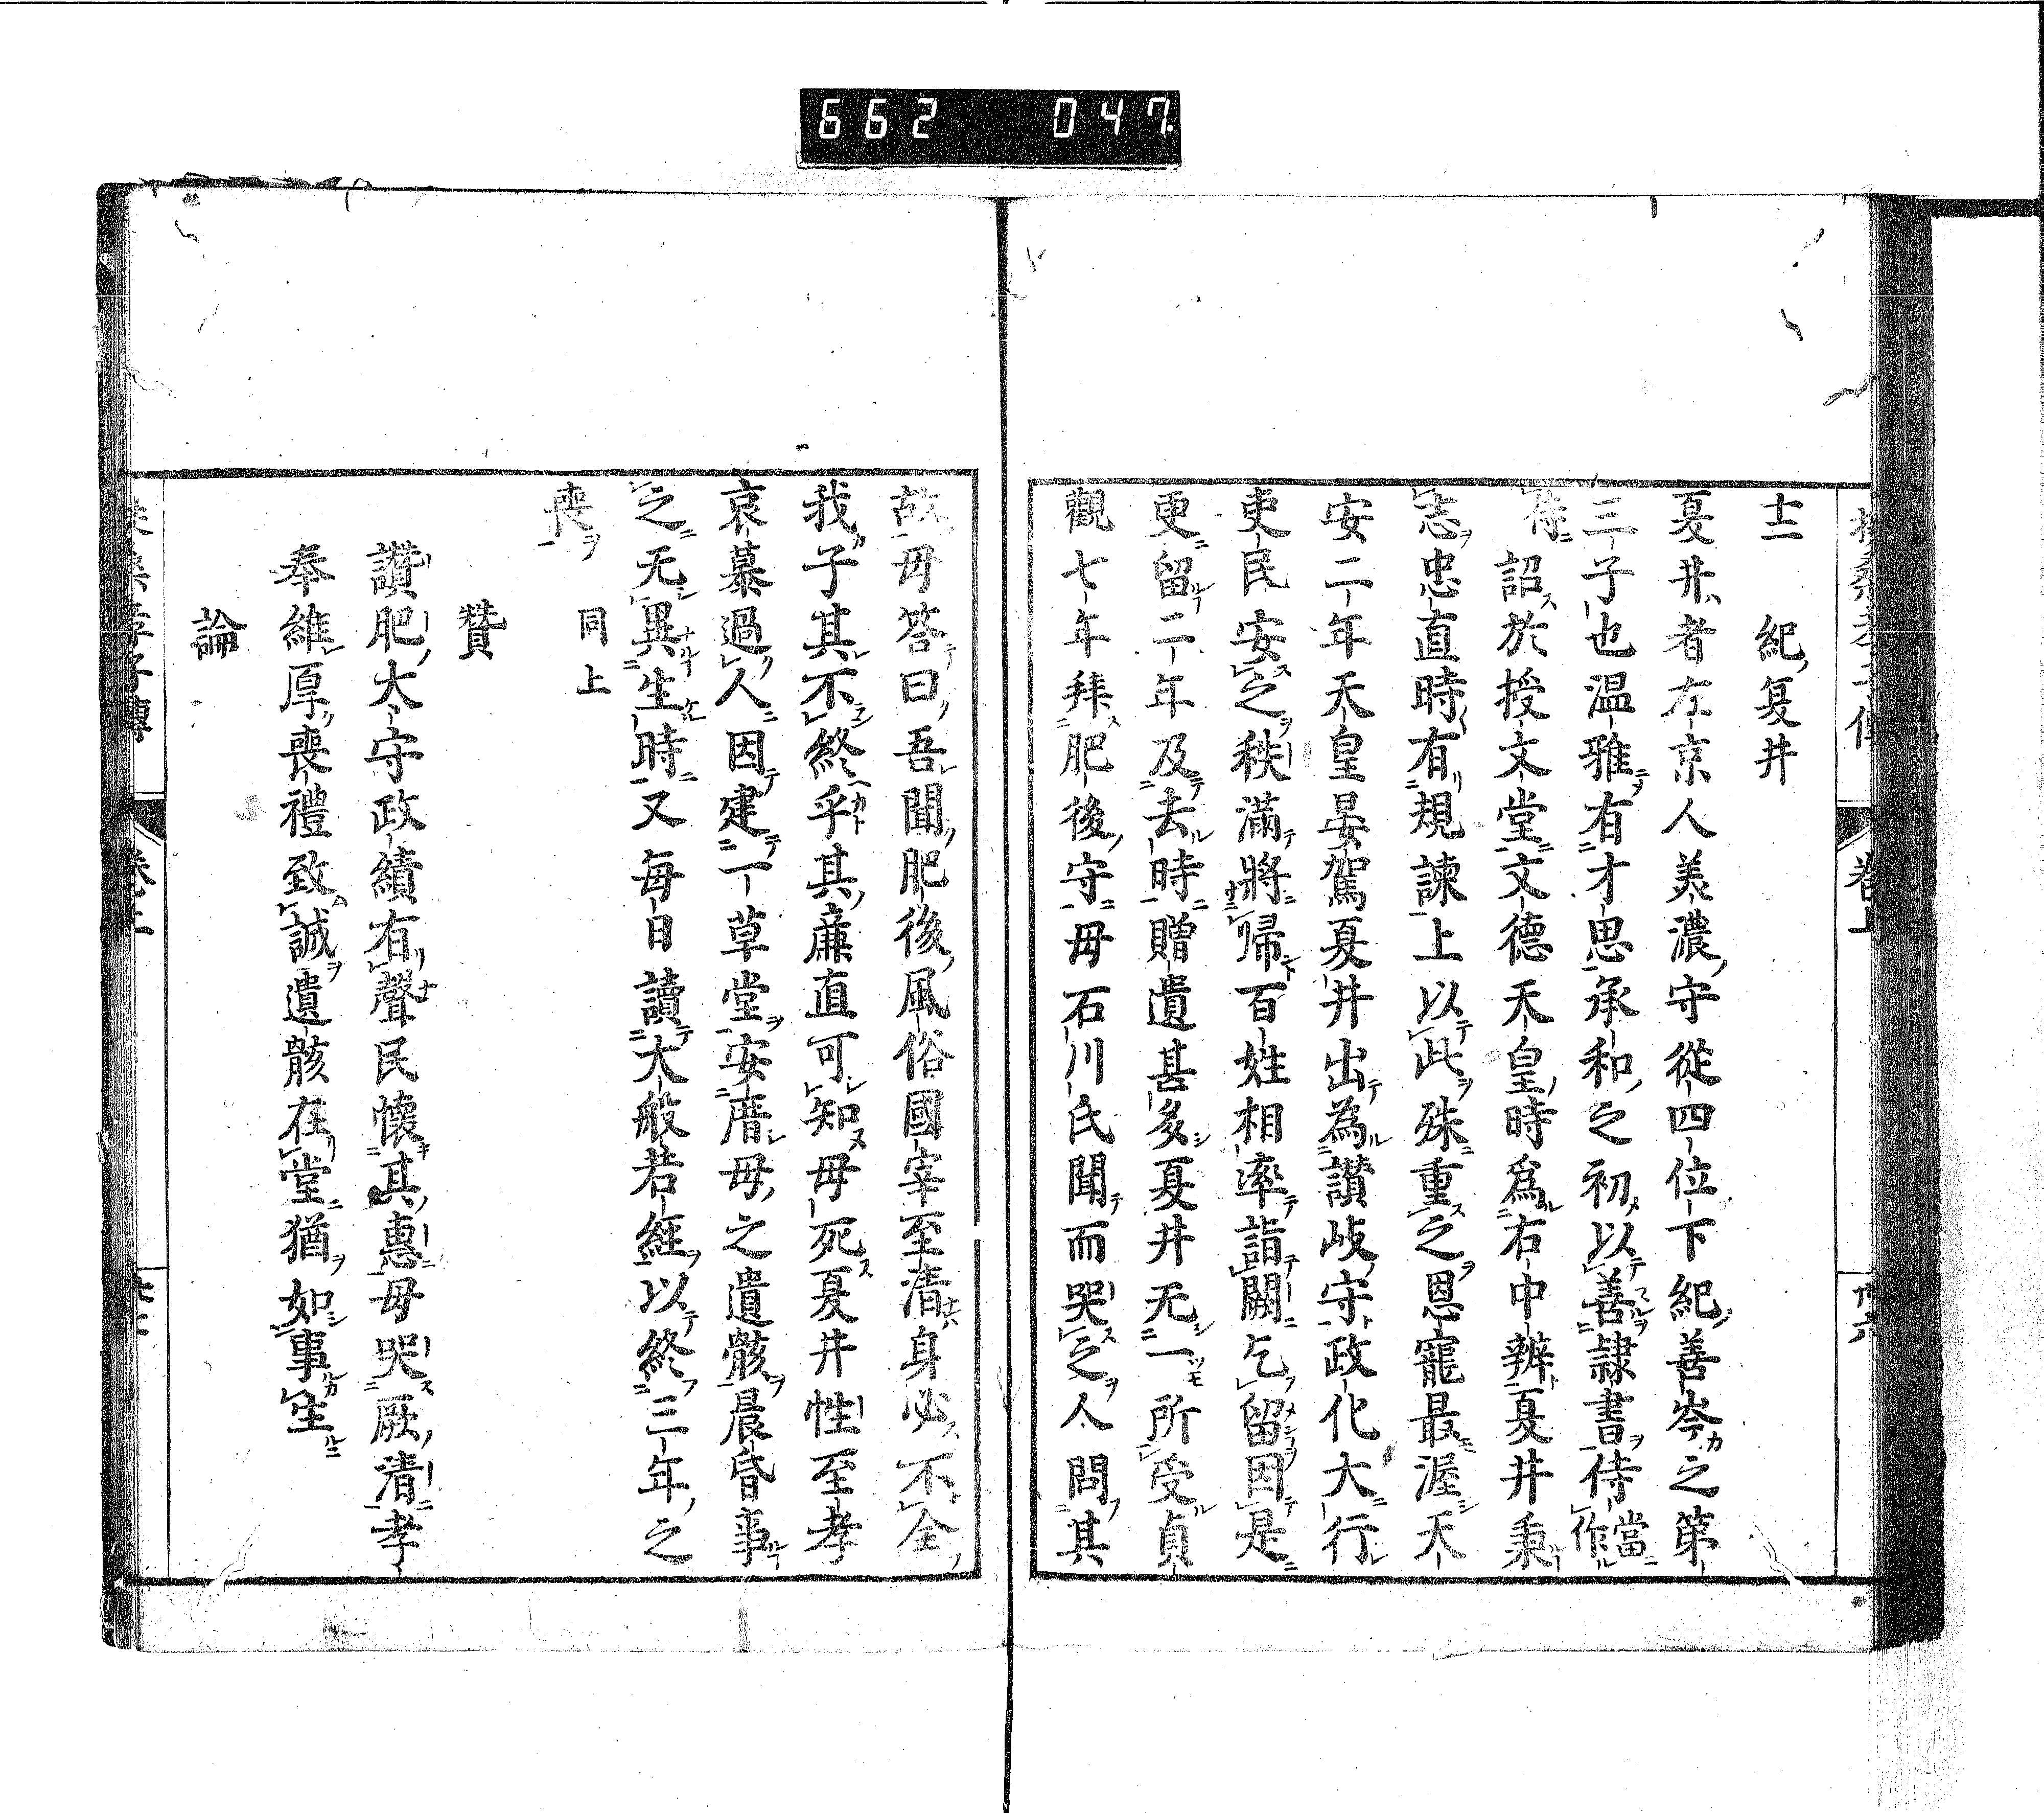 662 047
十二 紀夏井
夏井者左京人美濃守從四位下紀善岑之第
三子也温雅有才思承和之初以善隷書侍當作
待詔於授文堂文德天皇時爲右中辨夏井秉
志忠直時有規諫上以此殊重之恩寵最渥天
安二年天皇晏駕夏井出為讃岐守政化大行
吏民安之秩滿將歸百姓相率詣闕乞留因是
更留二年及去時贈遺甚多夏井无一所受貞
觀七年拜肥後守母石川氏聞而哭之人問其
故母答曰吾聞肥後風俗國宰至清身必不全
我子其不終乎其廉直可知母死夏井性至孝
哀慕過人因建一草堂安厝母之遺骸晨昏事
之无異生時又每日讀大般若經以終三年之
喪 同上
贊
讚肥大守政績有聲民懷其惠母哭厥清孝
奉維厚喪禮致誠遺骸在堂猶如事生
論